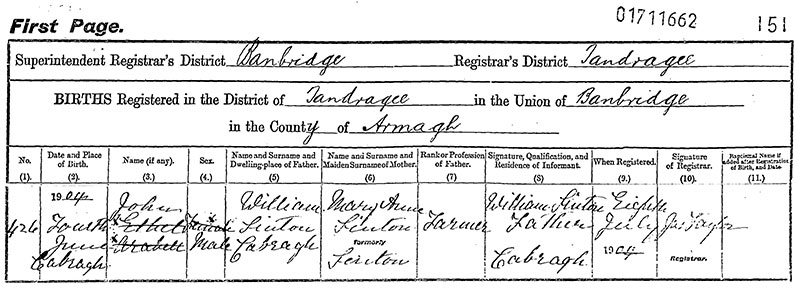 First Page.
01711662
151
Superintendent Registrar's District Banbridge
Registrar's District Tandragee
BIRTHS Registered in the District of Tandragee in the Union of Banbridge
in the County of Armagh
No. (1).
Date and Place of Birth. (2).
Name (if any). (3).
Sex. (4.)
Name and Surname and Dwelling-place of Father. (5)
Name and Surname and Maiden Surname of Mother. (6)
Rank or Profession of Father. (7)
Signature, Qualification, and Residence of Informant. (8)
When Registered. (9.)
Signature of Registrar. (10).
Baptismal Name if added after Registration of Birth, and Date. (11.)
426
1904
Fourth
June
Cabragh
John
Ethel
Female
Male
William
Sinton
Cabragh
Mary Anne
Sinton
Formerly
Sinton
Farmer
William Sinton
Father
Cabragh
Eighth
July
1904
Jas Taylor
Registrar.